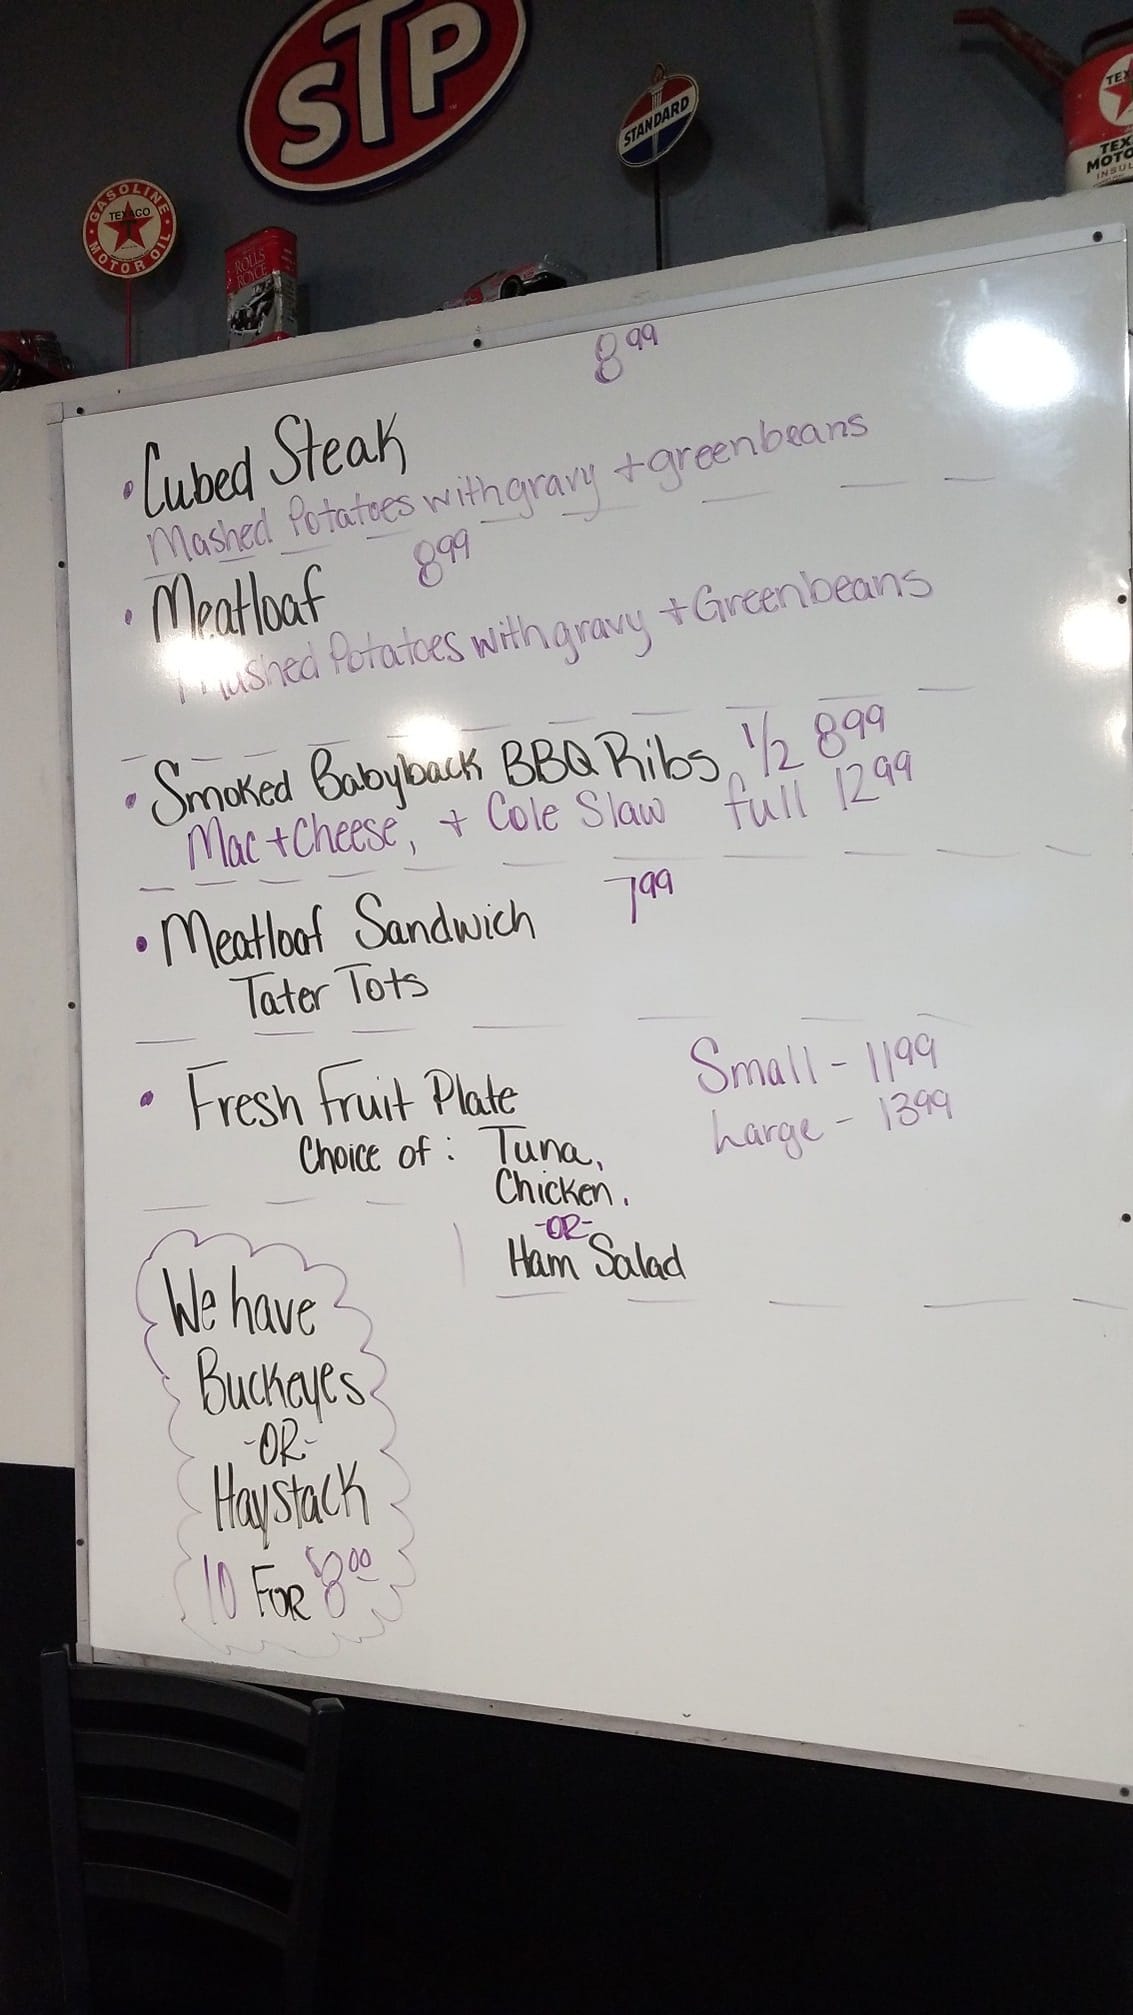 STP
STANDARD
TEX
TEX
MOTO
INSUL
GASOLINE
TEXACO
MOTOR OIL
ROLLS
ROYCE
8 99
• Cubed Steak
Mashed Potatoes with gravy + greenbeans
• Meatloaf 8 99
Mashed Potatoes with gravy + Greenbeans
• Smoked Babyback BBQ Ribs 1/2 8 99
Mac + Cheese, + Cole Slaw full 12 99
• Meatloaf Sandwich 7 99
Tater Tots
• Fresh Fruit Plate Small - 11 99
Choice of: Tuna, Large - 13 99
Chicken.
-OR-
Ham Salad
We have
Buckeyes
-OR-
Haystack
10 FOR $8 00